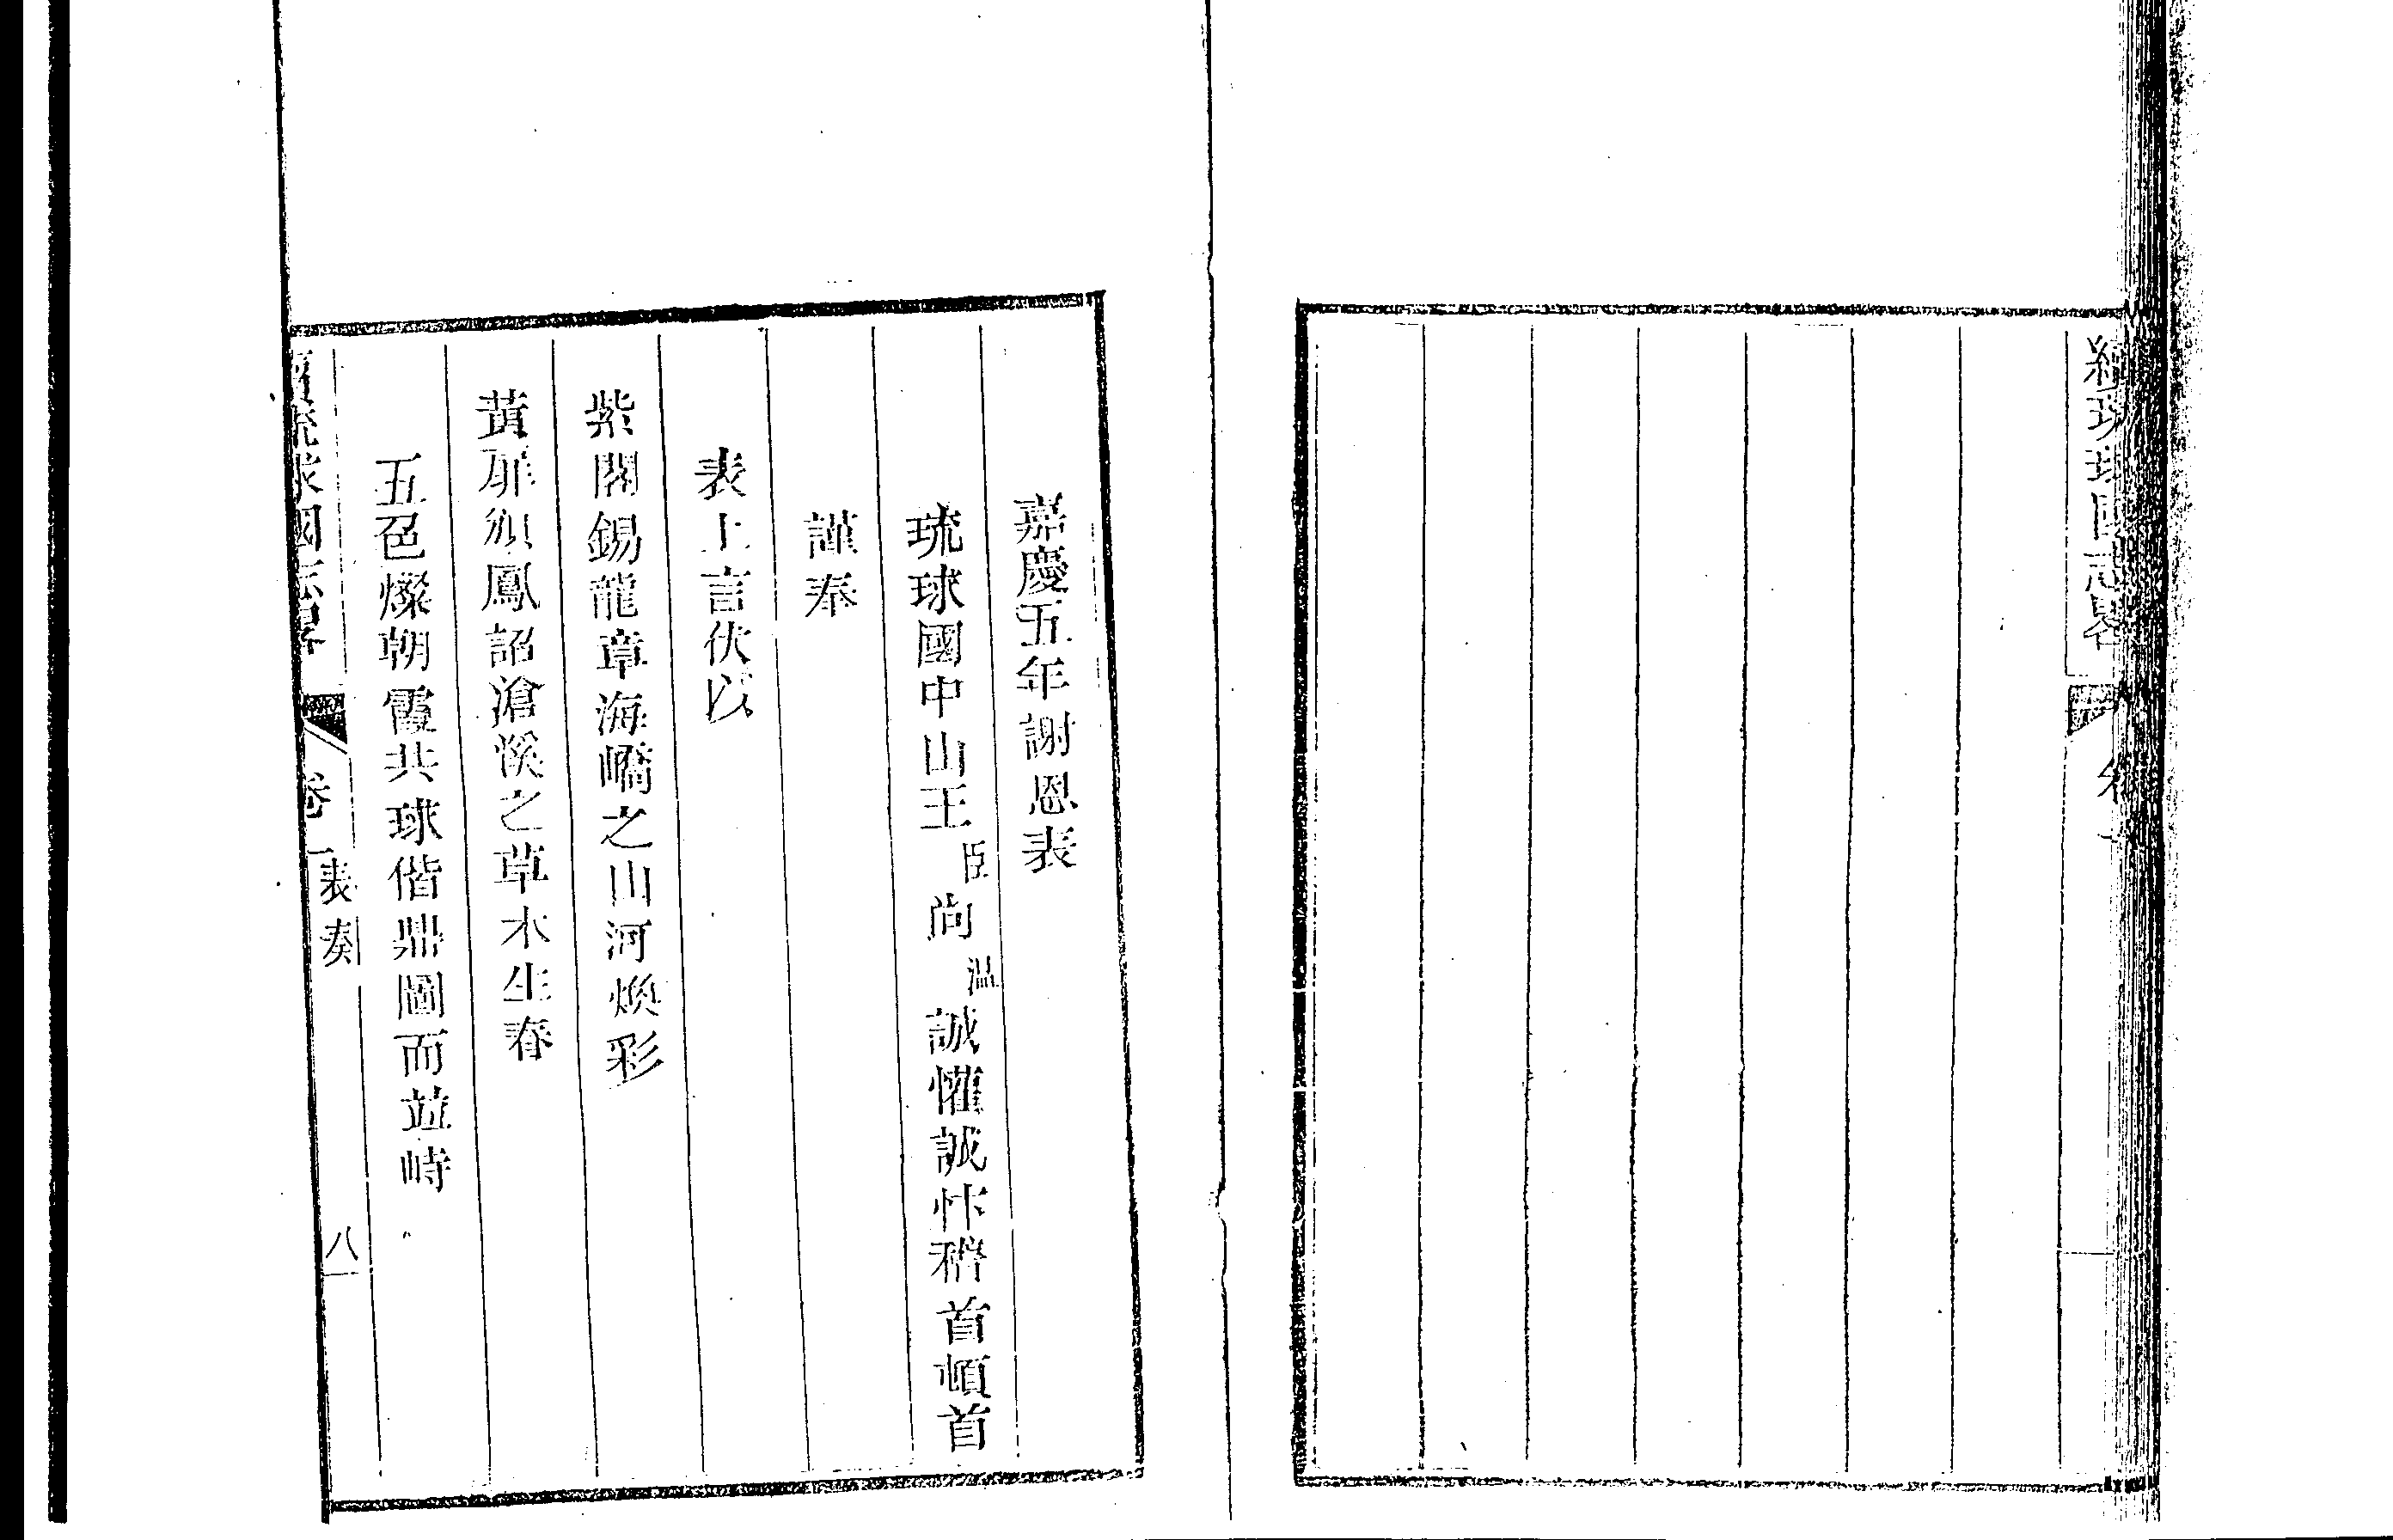 續琉球國志畧
卷
嘉慶五年謝恩表
琉球國中山王臣尚溫誠懽誠忭稽首頓首
謹奉
表上言伏以
紫閣錫龍章海嶠之山河煥彩
黃扉頒鳳詔滄溪之草木生春
五色燦朝霞共球偕鼎圖而並峙
續琉球國志畧
卷一
表奏
八